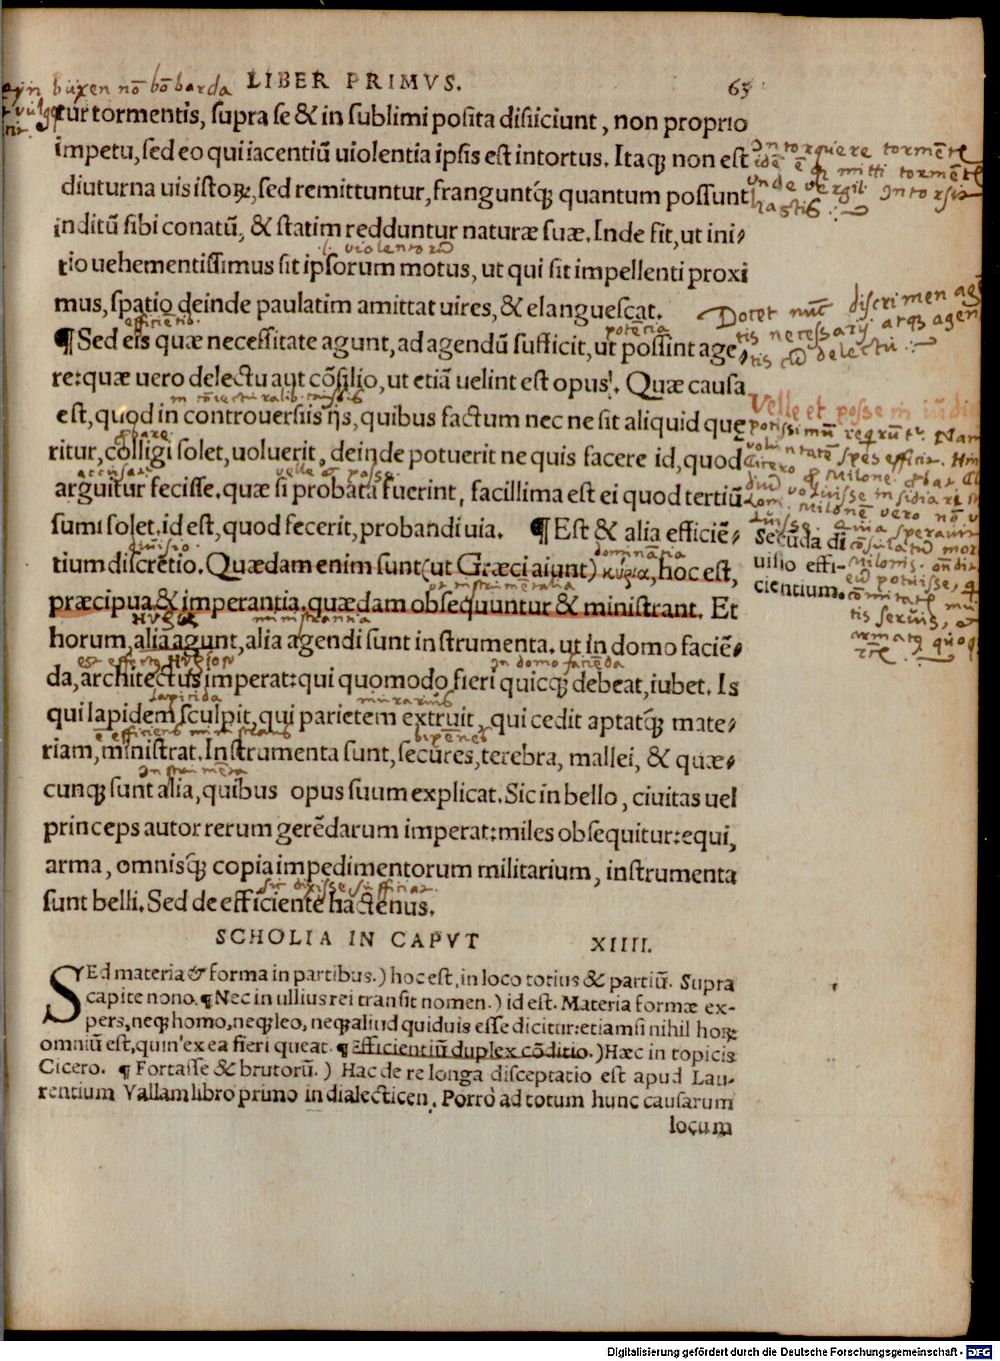 LIBER PRIMVS. 63
ayn büxen nō bōbarda
tur tormentis, supra se & in sublimi posita disiiciunt, non proprio
impetu, sed eo qui iacentiū uiolentia ipsis est intortus. Itaqꝫ non est
diuturna uis istoꝝ, sed remittuntur, franguntqꝫ́ quantum possunt
inditū sibi conatū, & statim redduntur naturæ suæ. Inde fit, ut ini⸗
violentorū
tio uehementissimus sit ipsorum motus, ut qui sit impellenti proxi
mus, spatio deinde paulatim amittat uires, & elanguescat.
potētia
¶ Sed eis quæ necessitate agunt, ad agendū sufficit, ut possint age⸗
re: quæ uero delectu aut cōsilio, ut etiā uelint est opus. Quæ causa
est, quod in controuersiis ijs, quibus factum nec ne sit aliquid quę
ritur, colligi solet, uoluerit, deinde potuerit ne quis facere id, quod
velle et posse
arguitur fecisse. quæ si probata fuerint, facillima est ei quod tertiū
sumi solet, id est, quod fecerit, probandi uia. ¶ Est & alia efficiē⸗
divisio dominātia
tium discretio. Quædam enim sunt (ut Græci aiunt) κυρια, hoc est,
præcipua & imperantia. quædam obsequuntur & ministrant. Et
ministrantia
horum, alia agunt, alia agendi sunt instrumenta. ut in domo faciē⸗
in domo faciēda
da, architectus imperat: qui quomodo fieri quicqꝫ debeat, iubet. Is
lapicida murarius
qui lapidem sculpit, qui parietem extruit, qui cedit aptatqꝫ́ mate⸗
bipēnes
riam, ministrat. Instrumenta sunt, secures, terebra, mallei, & quæ⸗
Instrumēta
cunqꝫ sunt alia, quibus opus suum explicat. Sic in bello, ciuitas uel
princeps autor rerum gerēdarum imperat: miles obsequitur: equi,
arma, omnisqꝫ́ copia impedimentorum militarium, instrumenta
sic dixisse sufficiat.
sunt belli. Sed de efficiente hactenus.
Intorquere tormēta
idē ē qꝫ mitti tormēta
vnde vergil. Intorsit
hastis
Docet nūc discrimen agē
tis necessarij atqꝫ agen
tis cū delectu
Velle et posse in iudi
Secūda di
uisio effi-
cientium.
SCHOLIA IN CAPVT XIIII.
SEd materia & forma in partibus.) hoc est, in loco totius & partiū. Supra
capite nono. ¶ Nec in ullius rei transit nomen.) id est. Materia formæ ex-
pers, neqꝫ homo, neqꝫ leo, neqꝫ aliud quiduis esse dicitur: etiamsi nihil hoꝝ
omniū est, quin ex ea fieri queat. ¶ Efficientiū duplex cōditio.) Hæc in topicis
Cicero. ¶ Fortasse & brutorū.) Hac de re longa disceptatio est apud Lau-
rentium Vallam libro primo in dialecticen. Porrò ad totum hunc causarum
locum
Digitalisierung gefördert durch die Deutsche Forschungsgemeinschaft - DFG